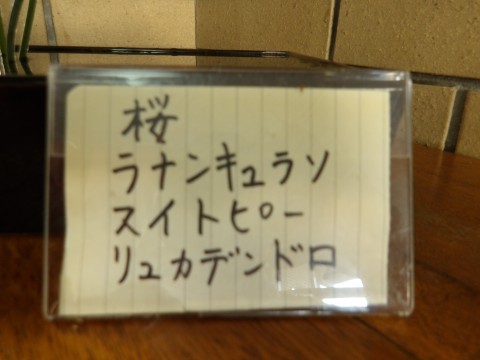 桜
ラナンキュラソ
スイトピー
リュカデンドロ